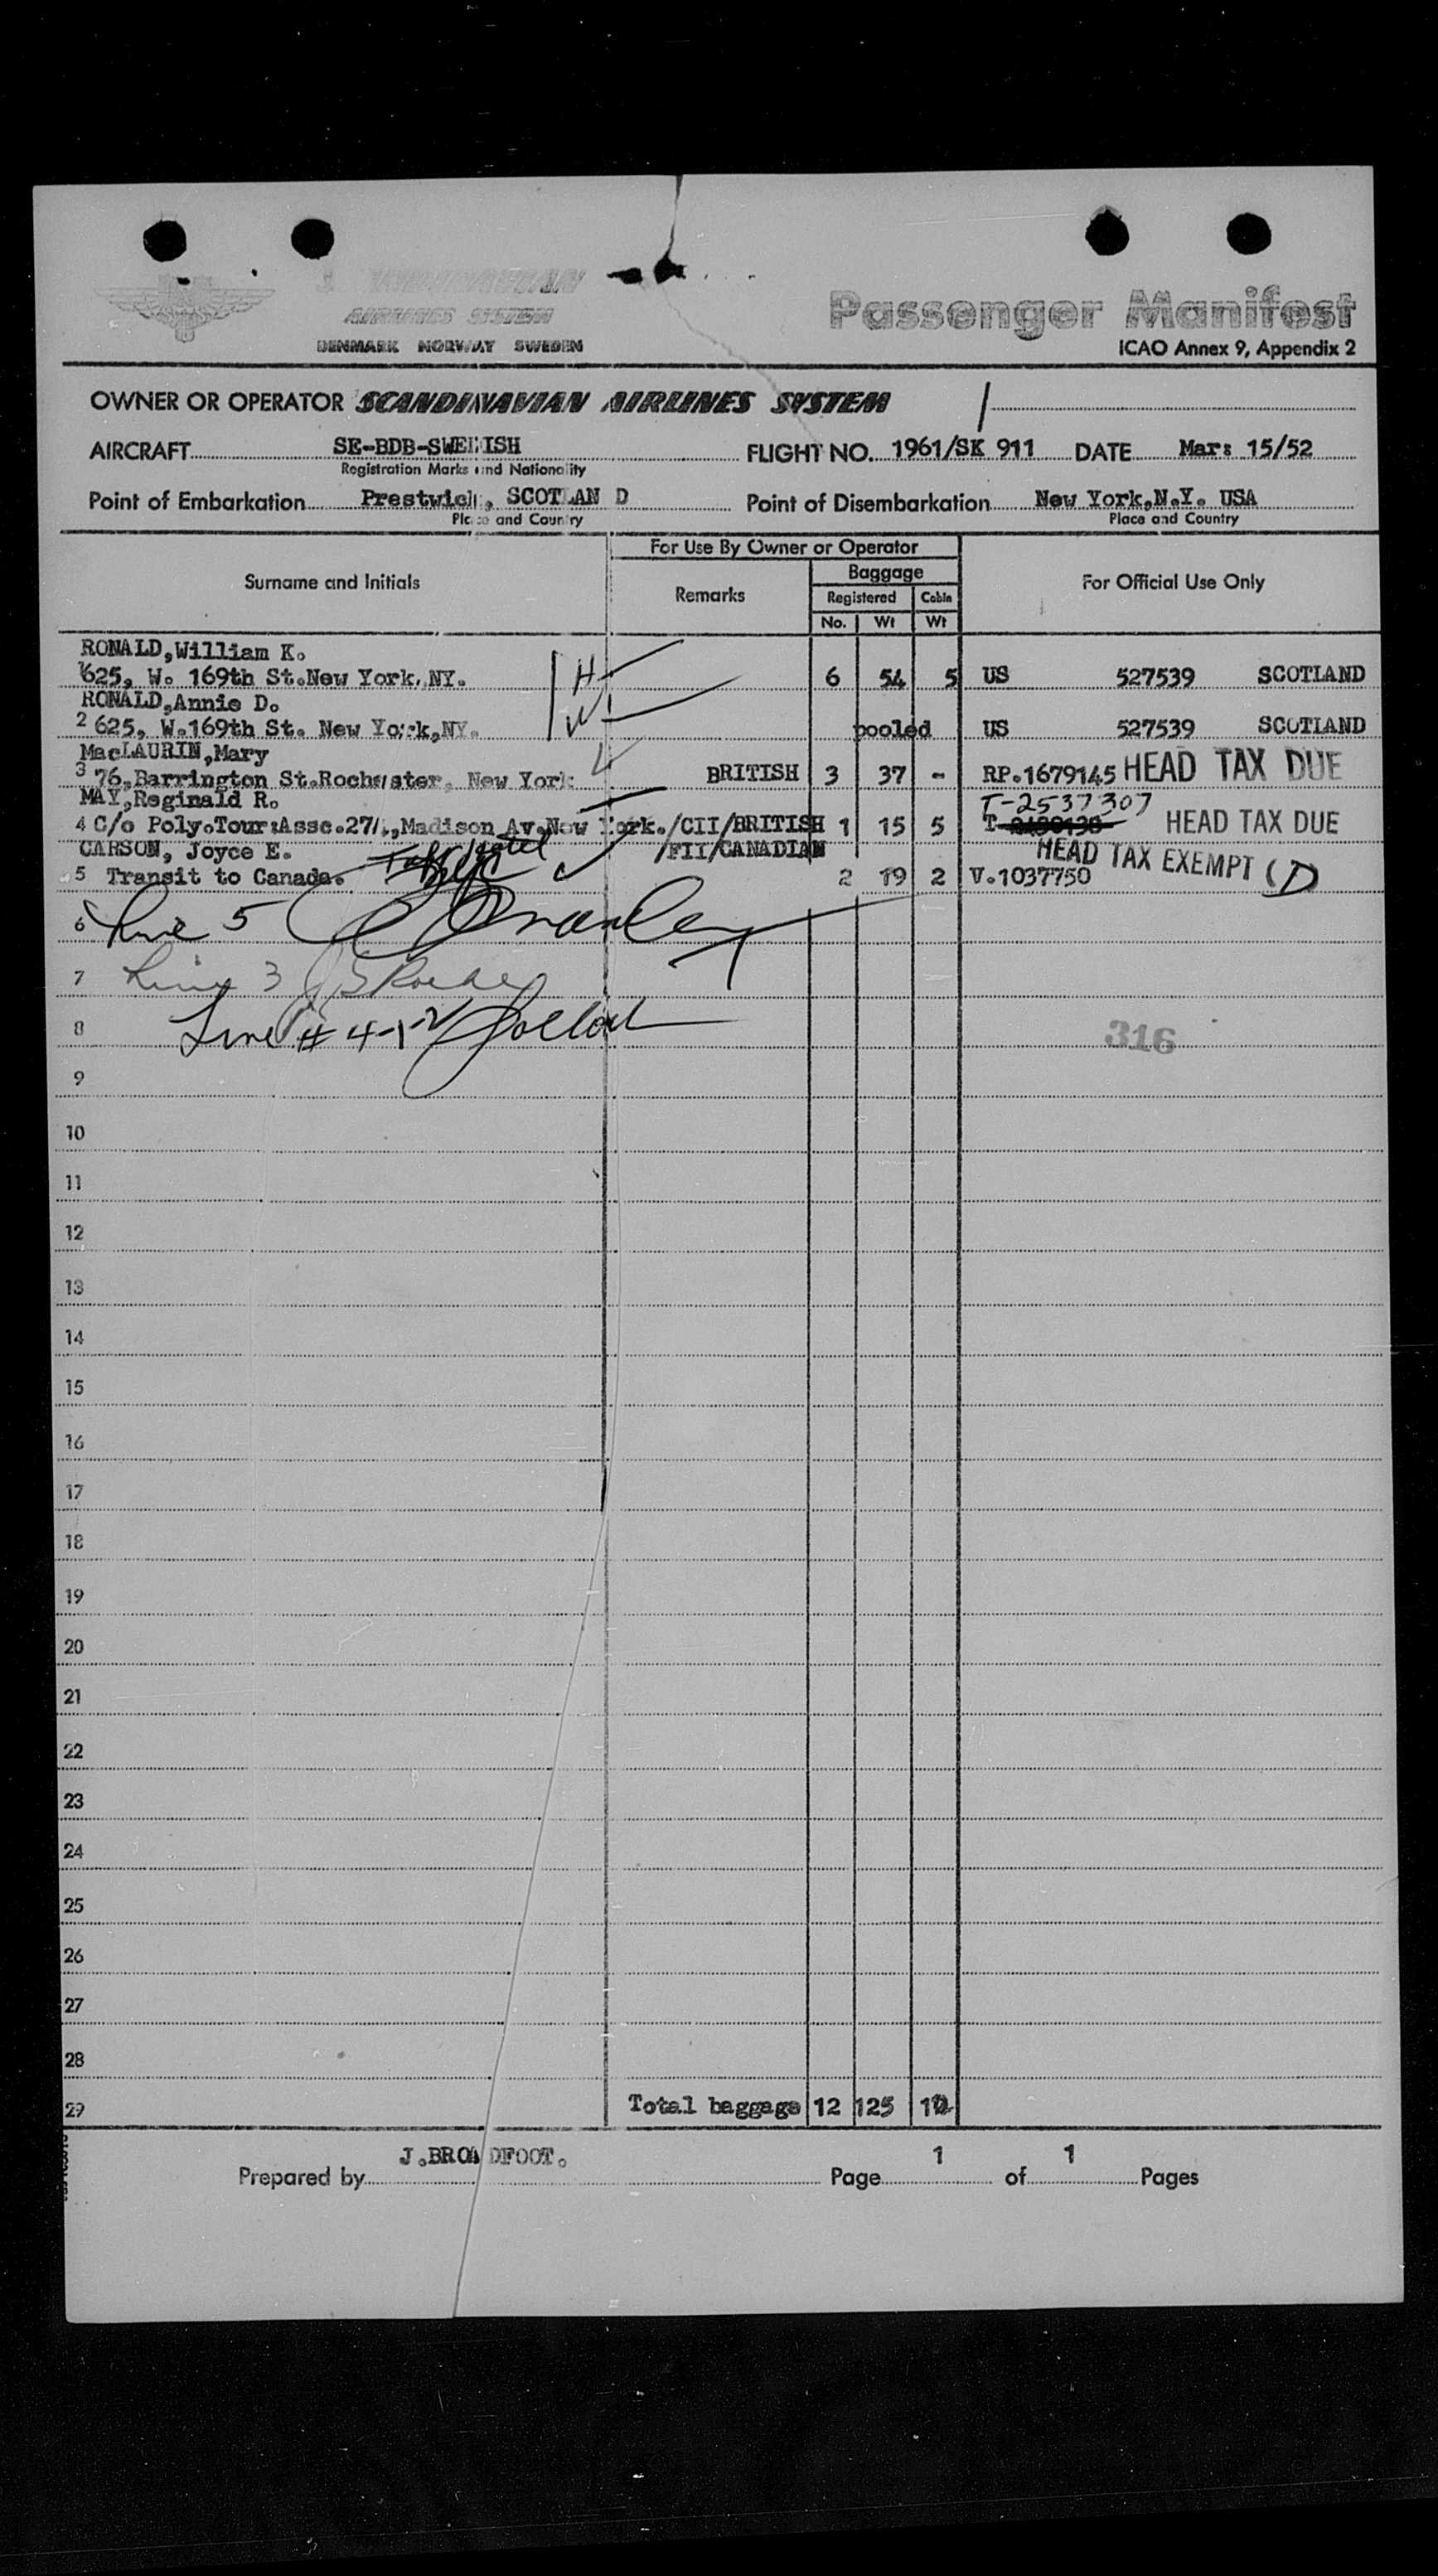 SCANDINAVIAN
AIRLINES SYSTEM
DENMARK NORWAY SWEDEN
Passenger Manifest
ICAO Annex 9, Appendix 2
OWNER OR OPERATOR SCANDINAVIAN AIRLINES SYSTEM
AIRCRAFT SE-BDB-SWEDISH FLIGHT NO. 1961/SK 911 DATE Mar: 15/52
Registration Marks and Nationality
Point of Embarkation Prestwick, SCOTLAN D Point of Disembarkation New York,N.Y. USA
Place and Country Place and Country
For Use By Owner or Operator
Surname and Initials Remarks Baggage For Official Use Only
Registered Cabin
No. Wt Wt
RONALD,William K.
1 625, W. 169th St.New York.NY. H 6 54 5 US 527539 SCOTLAND
RONALD,Annie D.
2 625, W.169th St. New York,NY. W pooled US 527539 SCOTLAND
MacLAURIN,Mary
3 76,Barrington St.Rochester, New York BRITISH 3 37 - RP.1679145 HEAD TAX DUE
MAY,Reginald R. T-2537307
4 C/o Poly.Tour:Assc.274,Madison Av.New York./CII/BRITISH 1 15 5 T- HEAD TAX DUE
CARSON, Joyce E. /FII/CANADIAN HEAD TAX EXEMPT (D)
5 Transit to Canada. 2 19 2 V.1037750
6 Line 5
7 Line 3
8 Line # 4-1-2 316
9
10
11
12
13
14
15
16
17
18
19
20
21
22
23
24
25
26
27
28
29 Total baggage 12 125 12
J.BROADFOOT.
Prepared by Page 1 of 1 Pages